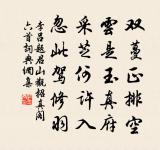 双甍正排空
雲是玉真府
采芝何许入
忽此驾修羽
李吕题君山觀招真阁
六首词典網集